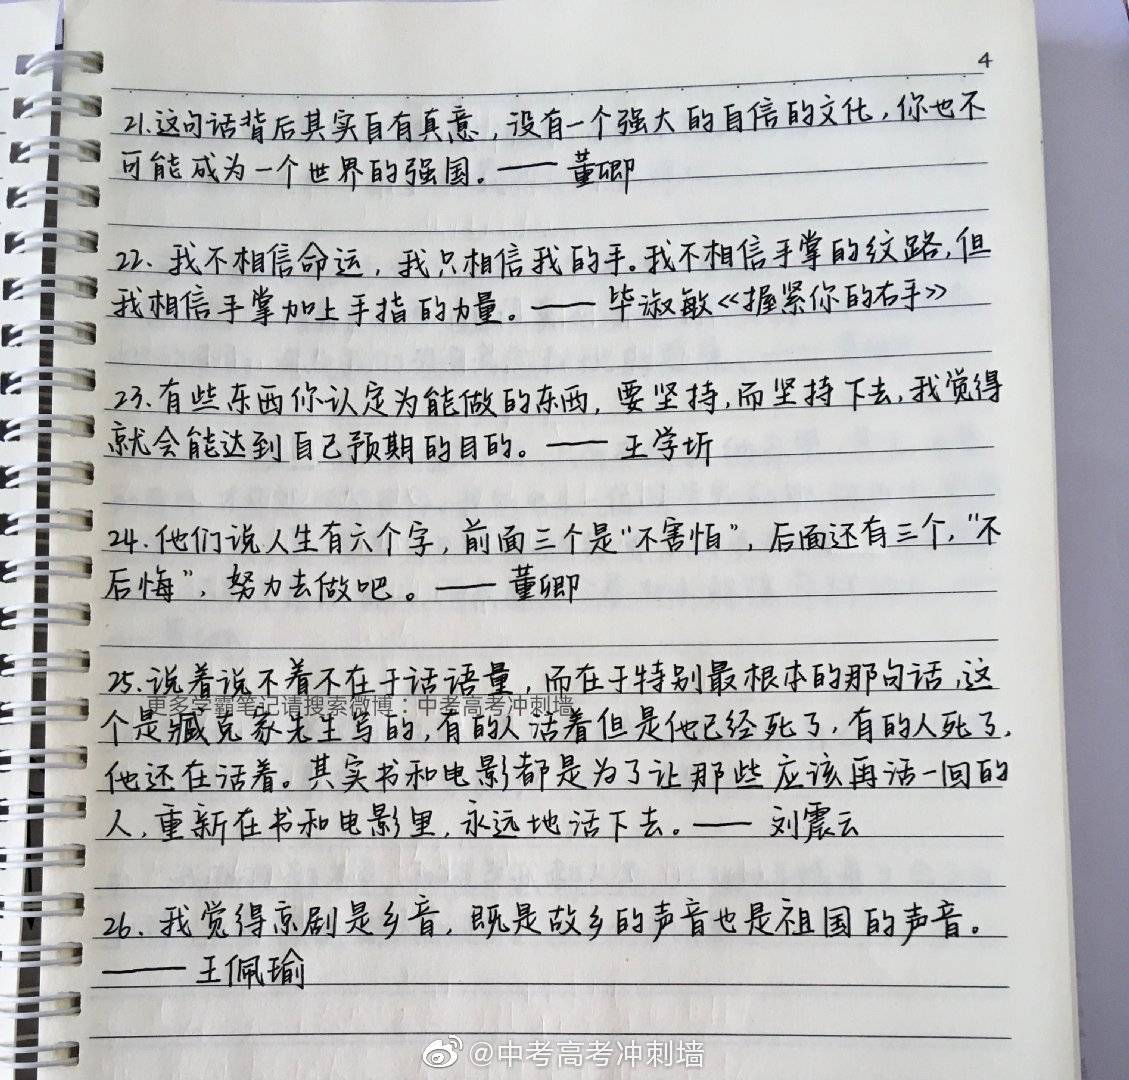 4
21.这句话背后其实自有真意，没有一个强大的自信的文化，你也不
可能成为一个世界的强国。——董卿
22、我不相信命运，我只相信我的手。我不相信手掌的纹路，但
我相信手掌加上手指的力量。——毕淑敏《握紧你的右手》
23、有些东西你认定为能做的东西，要坚持，而坚持下去，我觉得
就会能达到自己预期的目的。——王学圻
24.他们说人生有六个字，前面三个是“不害怕”，后面还有三个，“不
后悔”，努力去做吧。——董卿
25.说着说不着不在于话语量，而在于特别最根本的那句话，这
更多学霸笔记请搜索微博：中考高考冲刺墙
个是臧克家先生写的，有的人活着但是他已经死了，有的人死了，
他还在活着。其实书和电影都是为了让那些应该再活一回的
人，重新在书和电影里，永远地活下去。——刘震云
26、我觉得京剧是乡音，既是故乡的声音也是祖国的声音。
——王佩瑜
@中考高考冲刺墙